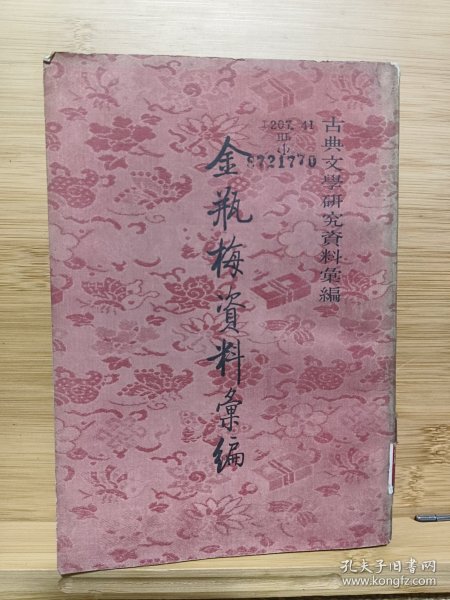 古典文學研究資料彙編
金瓶梅資料彙編
I207.41
8721770
孔夫子旧书网
www.kongfz.com